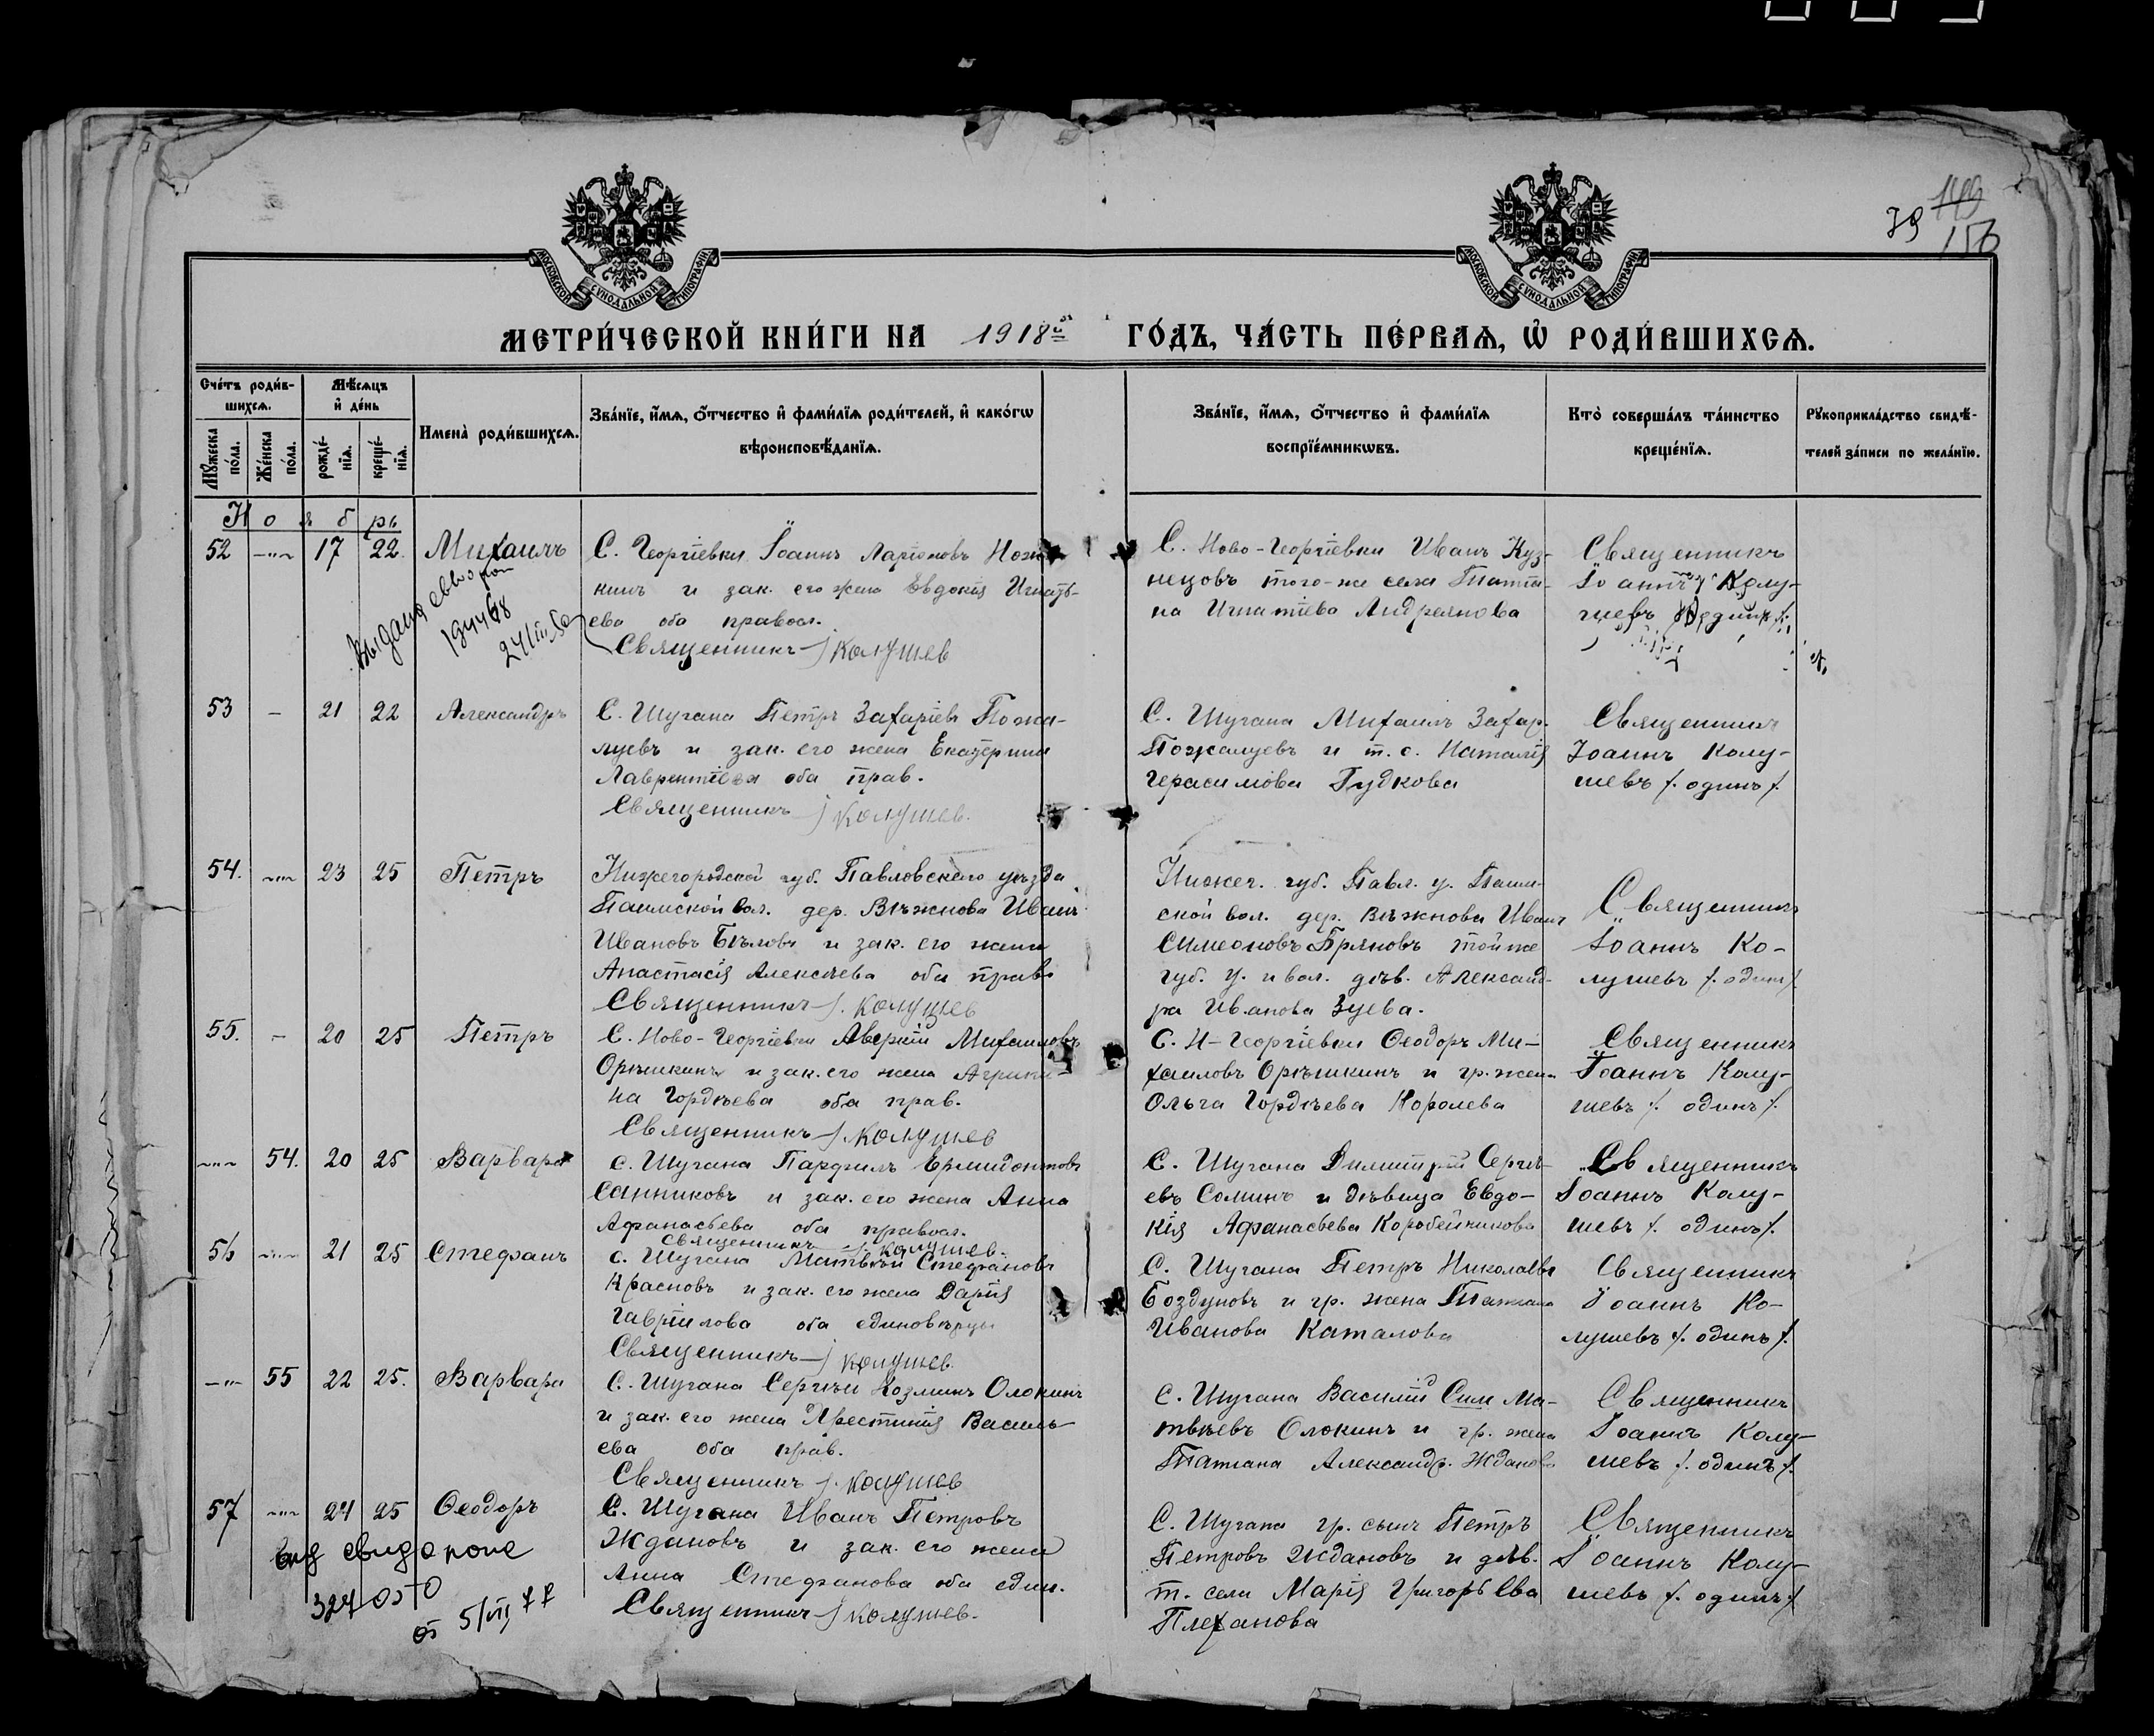 79 149
156
МОСКОВСКОЙ СѴНОДАЛЬНОЙ ТИПОГРАФІИ
МОСКОВСКОЙ СѴНОДАЛЬНОЙ ТИПОГРАФІИ
МЕТРИ́ЧЕСКОЙ КНИ́ГИ НА 1918й ГО́ДЪ, ЧА́СТЬ ПЕ́РВАѦ, Ѡ РОДИ́ВШИХСѦ.
Сче́тъ роди́вшихсѧ.
Мѣ́сѧцъ и҆ де́нь
Мꙋ́жеска по́ла.
Же́нска по́ла.
рожде́нїѧ.
креще́нїѧ.
И҆мена̀ роди́вшихсѧ.
Зва́нїе, и҆́мѧ, ѻ҆́тчество и҆ фами́лїѧ роди́телей, и҆ како́гѡ
вѣроисповѣ́данїѧ.
Зва́нїе, и҆́мѧ, ѻ҆́тчество и҆ фами́лїѧ
воспрїе́мникѡвъ.
Кто̀ соверша́лъ та́инство
креще́нїѧ.
Рꙋкоприкла́дство свидѣ́телей за́писи по жела́нїю.
Ноябрь
52 -"- 17 22. Михаилъ
С. Георгіевки Іоаннъ Ларіоновъ
кинъ и зак. его жена Евдокія Игнатьева оба правосл.
Священникъ Колушев
С. Ново-Георгіевки Иванъ Кузнецовъ того-же села
на Игнатіева Андреянова
Священникъ
Іоаннъ Колушевъ
Выдана
24/III
53 - 21 22 Александръ
С. Шугана Петръ Захаріевъ Пожалуевъ и зак. его жена Екатерина
Лаврентіева оба прав.
Священникъ Колушев.
С. Шугана Михаилъ Захар.
Пожалуевъ и т. с. Наталія
Герасимова Гудкова
Священникъ
Іоаннъ Колушевъ /. одинъ /.
54. -"- 23 25 Петръ
Нижегородской губ. Павловскаго уѣзда
Паимской вол. дер. Вѣжнова Иванъ
Ивановъ Бѣловъ и зак. его жена
Анастасія Алексѣева оба прав.
Священникъ /. Колушев
Нижег. губ. Павл. у. Паимской вол. дер. Вѣжнова Иванъ
Симеоновъ Пряновъ той же
губ. у. и вол. дѣв. Александра Иванова Зуева.
Священникъ
Іоаннъ Колушевъ /. одинъ /
55. - 20 25 Петръ
С. Ново-Георгіевки Аверкій Михаиловъ
Орѣшкинъ и зак. его жена Агрипина Гордѣева оба прав.
Священникъ /. Колушев
С. Н-Георгіевки Ѳеодоръ Михаиловъ Орѣшкинъ и гр. жена
Ольга Гордѣева Королева
Священникъ
Іоаннъ Колушевъ /. одинъ /.
-"- 54. 20 25 Варвара
с. Шугана Парфилъ Ермидонтовъ
Санниковъ и зак. его жена Анна
Афанасьева оба правосл.
Священникъ /. Колушев.
С. Шугана Димитрій Сергѣевъ Соминъ и дѣвица Евдокія Афанасьева Коробейникова
Священникъ
Іоаннъ Колушевъ /. одинъ /.
56 -"- 21 25 Стефанъ
с. Шугана Матвѣй Стефановъ
Красновъ и зак. его жена Дарія
Гавріилова оба единовѣрцы
Священникъ Колушев.
С. Шугана Петръ Николаевъ
Боздуновъ и гр. жена Татіана
Иванова Каталова
Священникъ
Іоаннъ Колушевъ /. одинъ /.
-"- 55 22 25. Варвара
С. Шугана Сергѣй Козминъ Олокинъ
и зак. его жена Хрестинія Васильева оба прав.
Священникъ /. Колушев
С. Шугана Василій Сим Матвѣевъ Олокинъ и гр. жена
Татіана Александр. Жданова
Священникъ
Іоаннъ Колушевъ /. одинъ /.
57 -"- 24 25 Ѳеодоръ
С. Шугана Иванъ Петровъ
Ждановъ и зак. его жена
Анна Стефанова оба един.
Священникъ Колушев.
С. Шугана гр. сынъ Петръ
Петровъ Ждановъ и дѣв.
т. села Марія Григорьева
Плеханова
Священникъ
Іоаннъ Колушевъ /. одинъ /